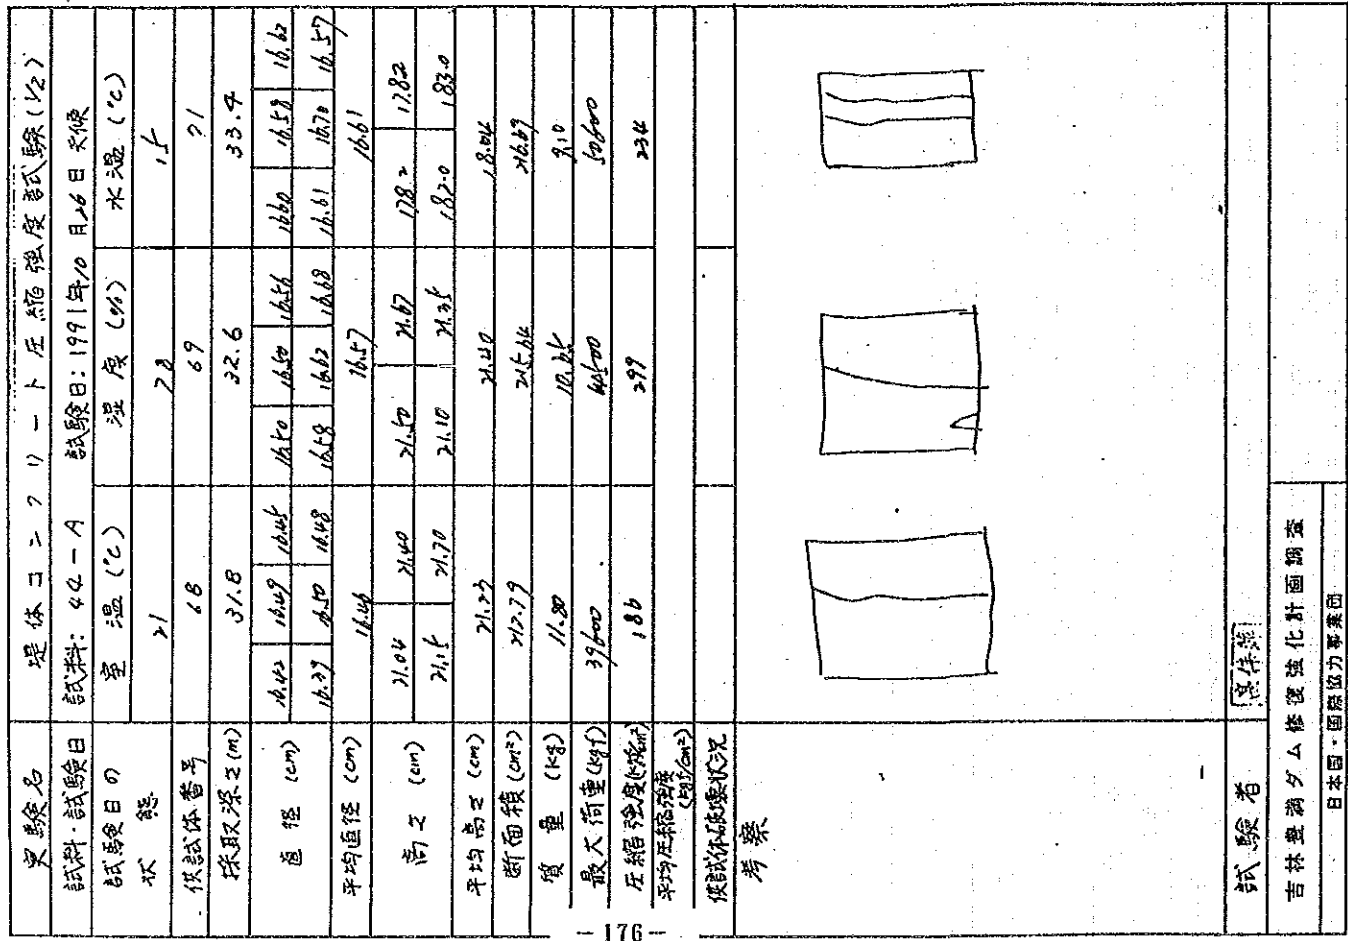 実験名 堤体コンクリート圧縮強度試験(1/2)
試料・試験日 試料: 44-A 試験日:1991年10月26日 天候
試験日の状態 室温 (℃) 湿度 (%) 水温 (℃)
21 78 15
供試体番号 68 69 71
採取深さ(m) 31.8 32.6 33.4
直径 (cm) 16.42 16.49 16.45 16.50 16.50 16.56 16.60 16.58 16.62
16.39 16.50 16.48 16.58 16.62 16.68 16.61 16.70 16.57
平均直径 (cm) 16.46 16.57 16.61
高さ (cm) 21.04 21.40 21.50 21.67 17.82 17.82
21.15 21.70 21.10 21.35 18.20 18.30
平均高さ (cm) 21.23 21.40 18.04
断面積 (cm²) 212.79 215.64 216.69
質量 (kg) 11.80 10.65 9.10
最大荷重(kgf) 39600 50600
圧縮強度(kgf/cm²) 186 299 234
平均圧縮強度(kgf/cm²)
供試体破壊状況
考察
試験者
吉林豊満ダム修復強化計画調査
日本国・国際協力事業団
-176-